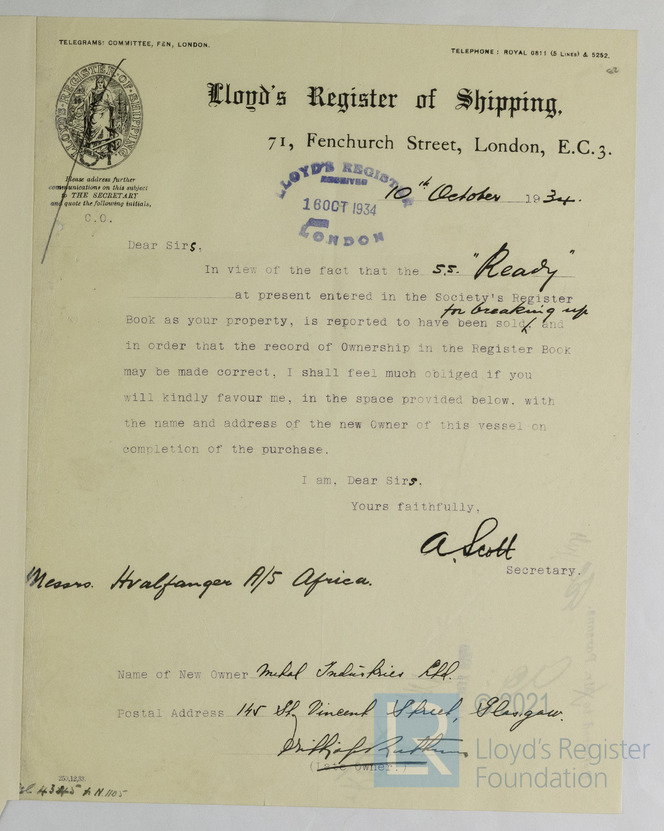 TELEGRAMS: COMMITTEE, FEN, LONDON.
TELEPHONE: ROYAL 0811 (5 LINES) & 5252.
LLOYD'S REGISTER OF SHIPPING
Lloyd's Register of Shipping,
71, Fenchurch Street, London, E.C.3.
Please address further
communications on this subject
to THE SECRETARY
and quote the following initials,
C.O.
LLOYD'S REGISTER
RECEIVED
16 OCT 1934
LONDON
10th October 1934.
Dear Sirs,
In view of the fact that the s.s. "Ready"
at present entered in the Society's Register
for breaking up
Book as your property, is reported to have been sold, and
in order that the record of Ownership in the Register Book
may be made correct, I shall feel much obliged if you
will kindly favour me, in the space provided below, with
the name and address of the new Owner of this vessel on
completion of the purchase.
I am, Dear Sirs,
Yours faithfully,
A. Scott
Secretary.
Messrs. Hvalfanger A/S Africa.
Name of New Owner Metal Industries Ltd.
Postal Address 145 St Vincent Street, Glasgow.
(Late Owner.)
© 2021
Lloyd's Register
Foundation
LR